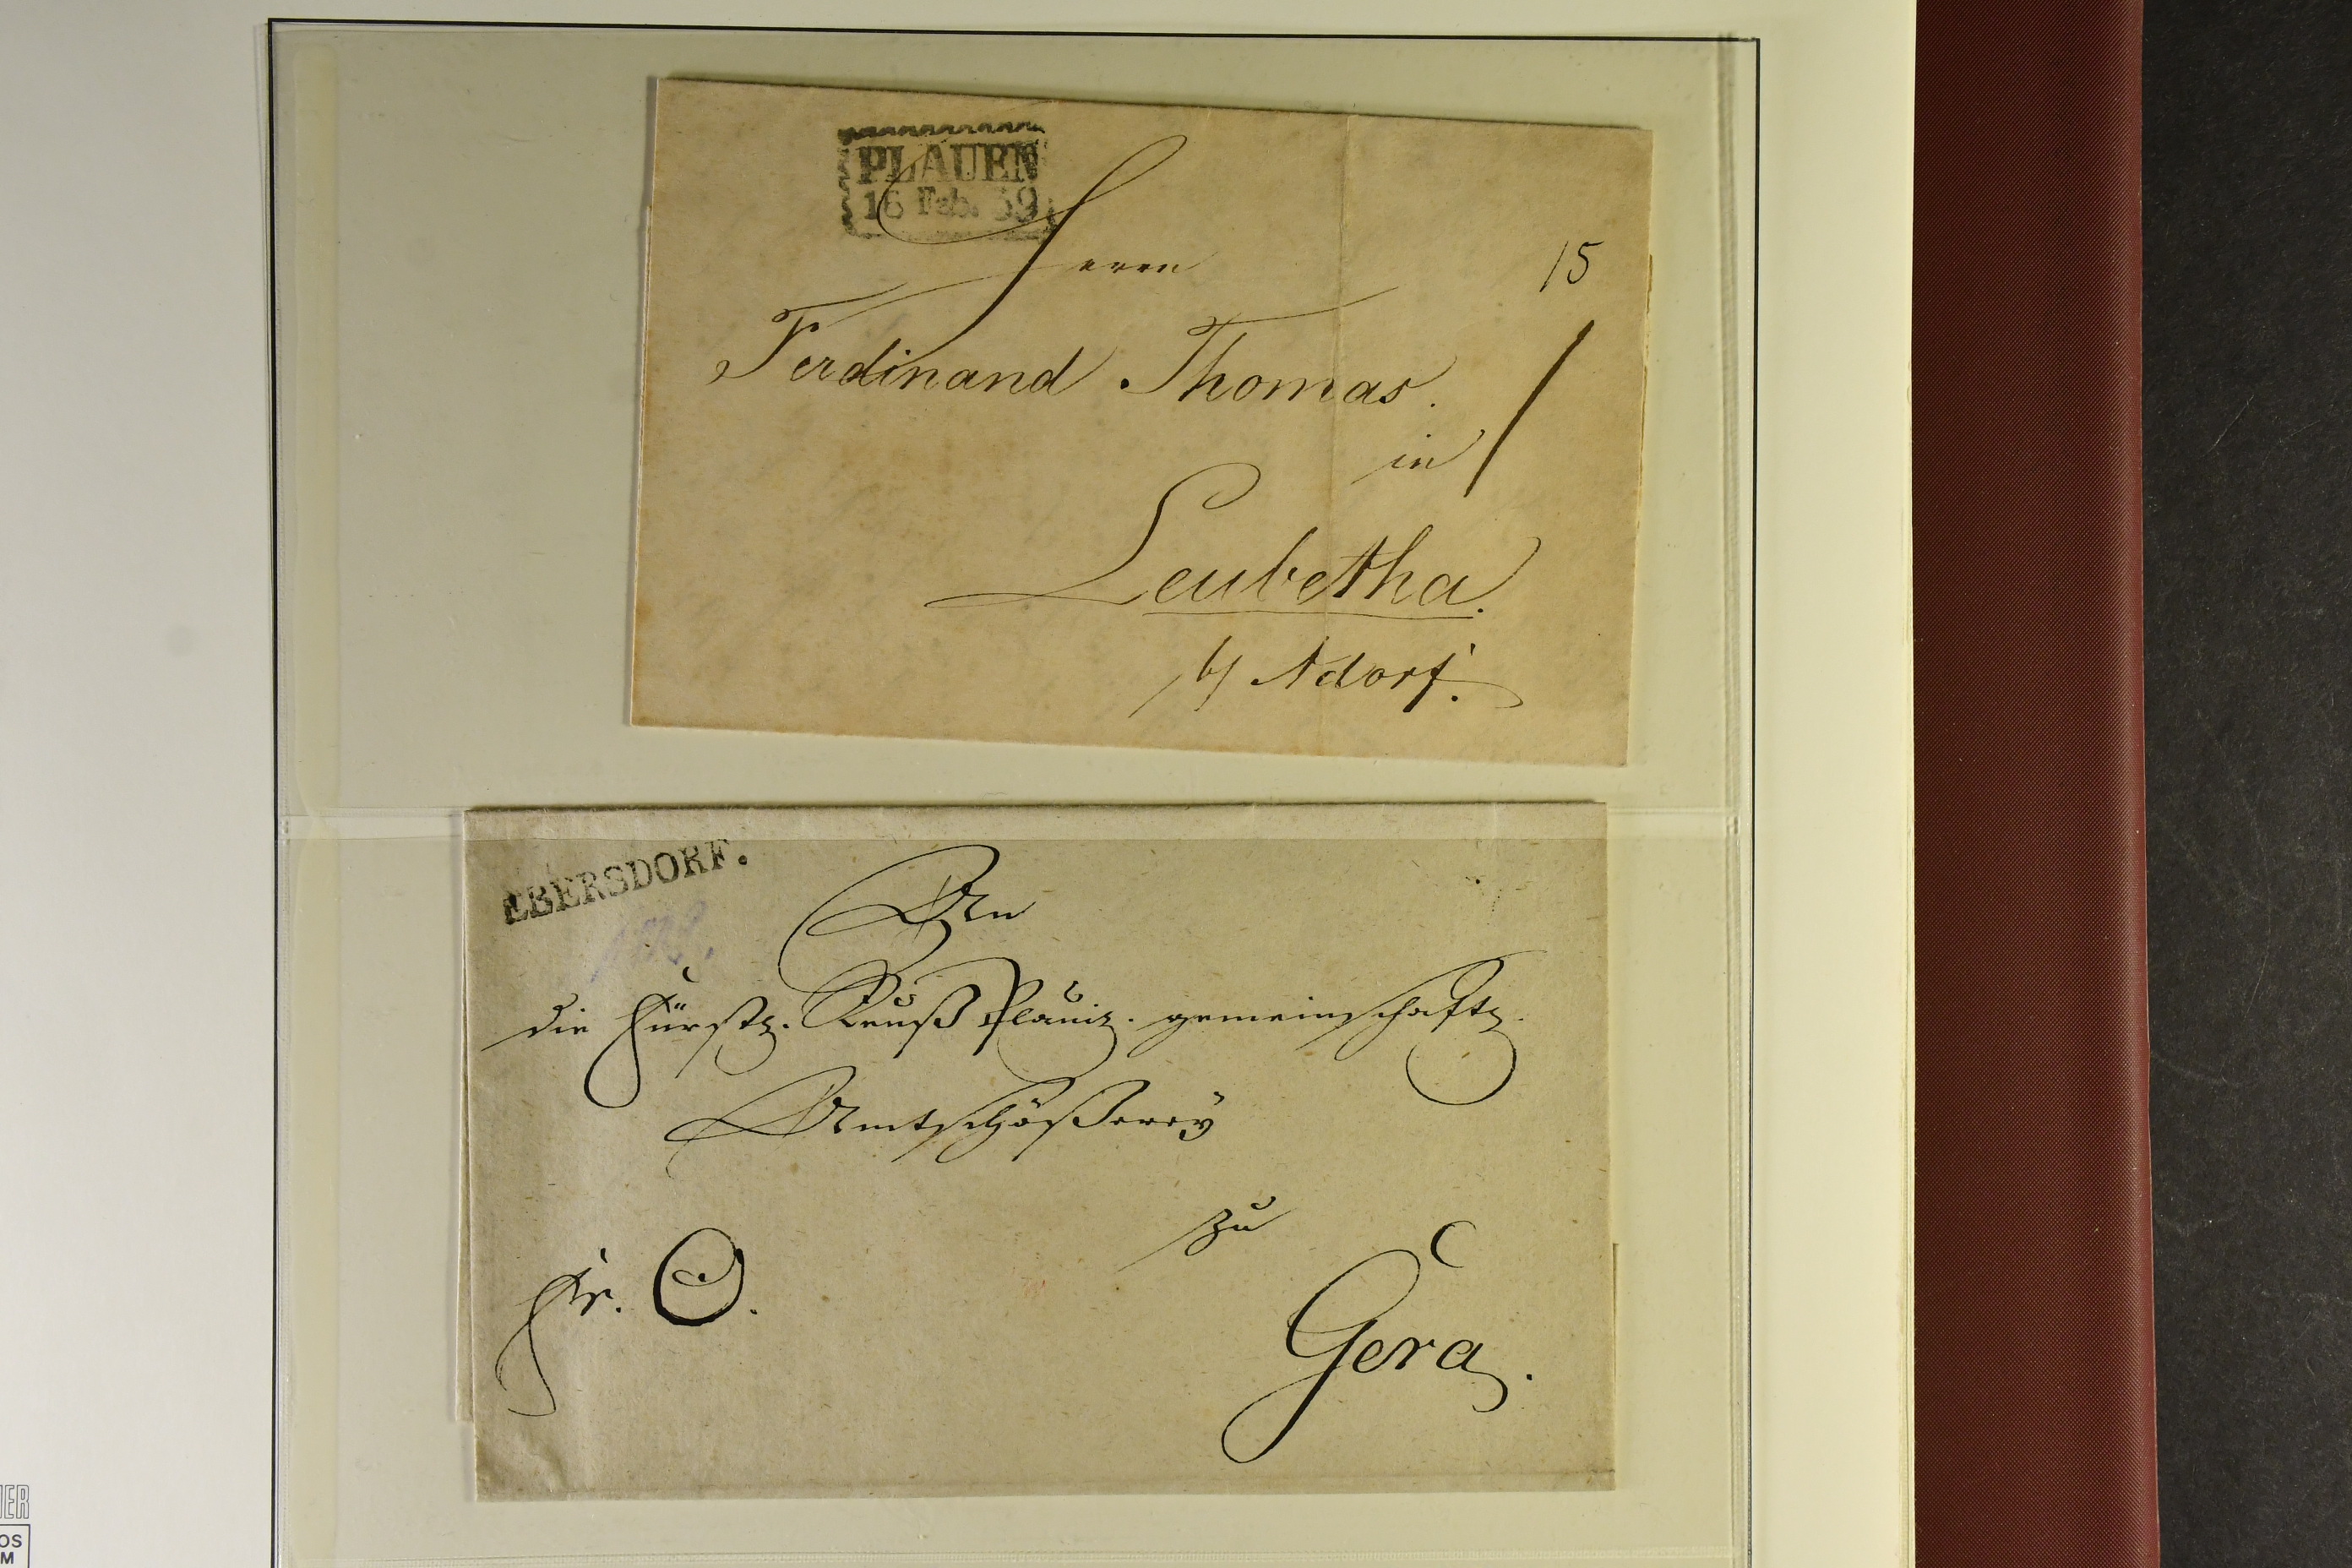 PLAUEN
16 Feb. 59
Herrn
15
Ferdinand Thomas.
in
Leubetha.
b/ Adorf.
EBERSDORF.
An
die Fürstl. Reuß Plauis. gemeinschaftl.
Amtschößerey
zu
fr. O.
Gera.